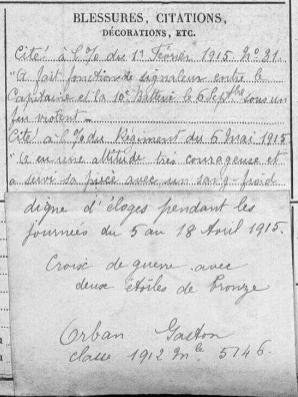 BLESSURES, CITATIONS,
DÉCORATIONS, ETC.
Cité à l'% du 1er Février 1915 No 31.
"A fait fonction de signaleur entre le
Capitaine et la 10e Batterie le 6 Septbre sous un
feu violent _
Cité à l'% du Régiment du 6 Mai 1915
"a eu une attitude très courageuse et
a servi sa pièce avec un sang-froid
digne d'éloges pendant les
journées du 5 au 18 Avril 1915.
Croix de guerre avec
deux étoiles de bronze
Orban Gaston
classe 1912 Mle 5746.